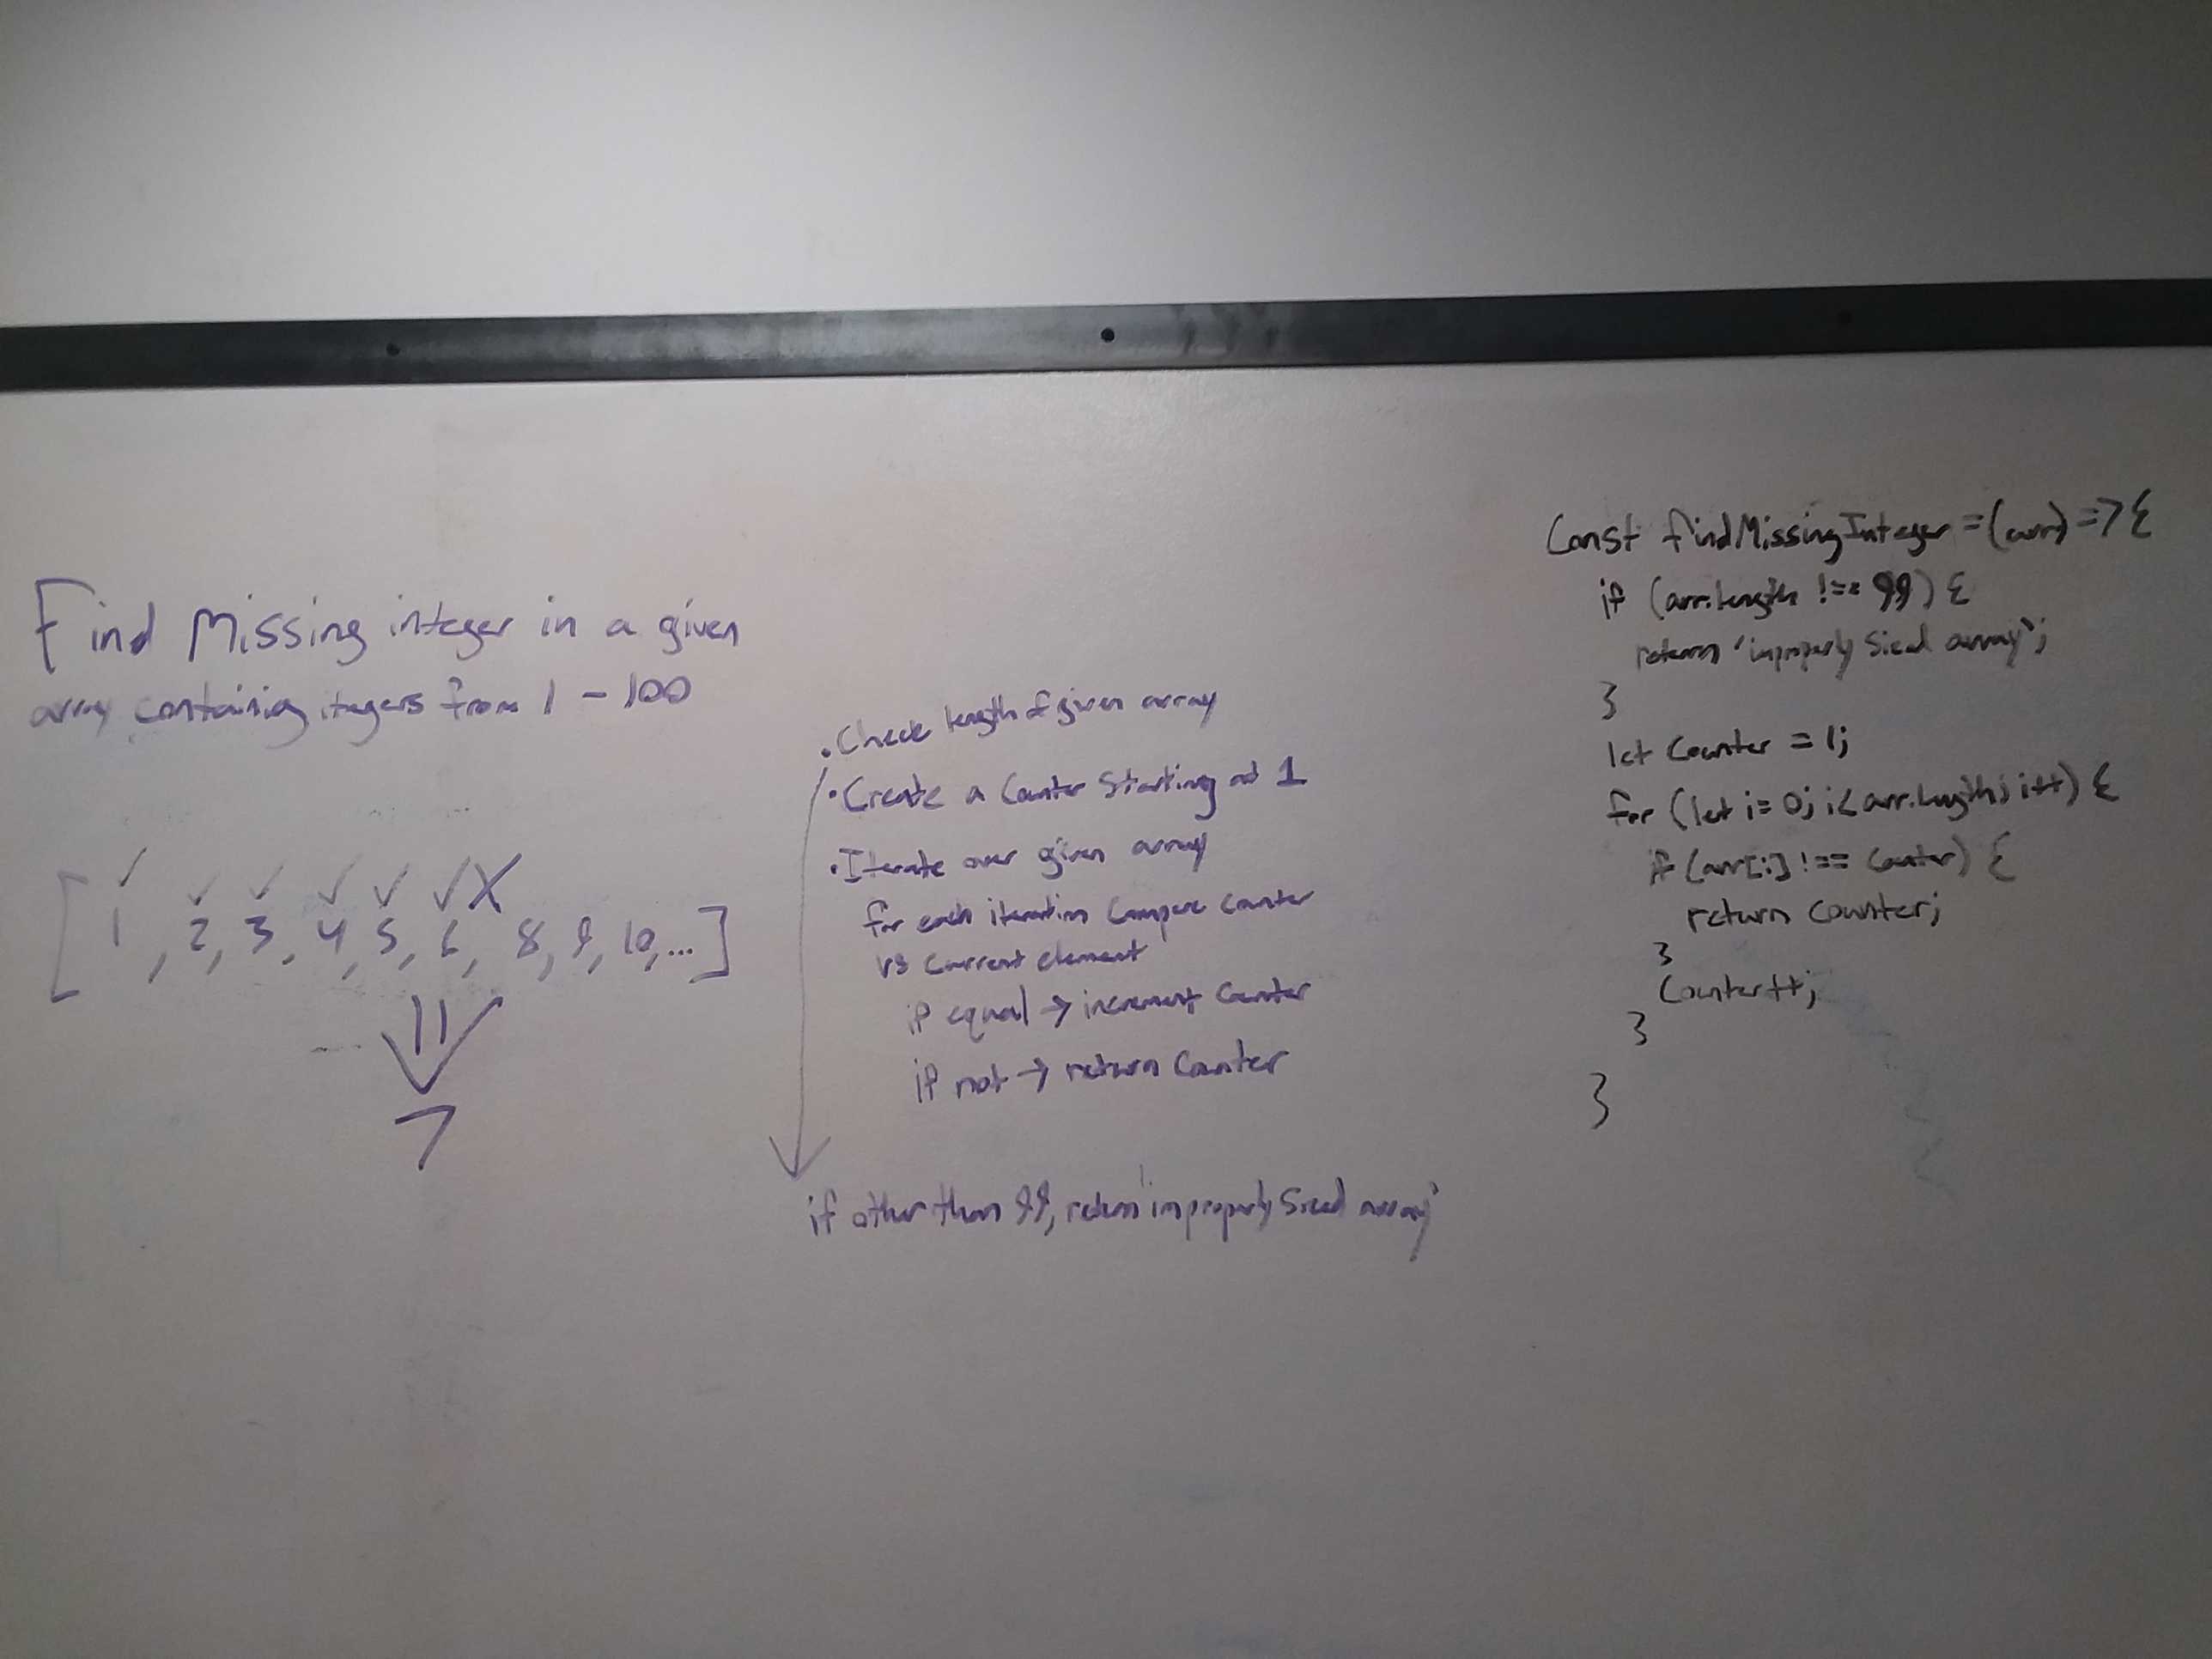 Find Missing integer in a given
array containing itegers from 1 - 100
✓ ✓ ✓ ✓ ✓ ✓ X
[ 1, 2, 3, 4, 5, 6, 8, 9, 10, ... ]
7
• Check length of given array
• Create a Counter Starting at 1
• Iterate over given array
for each iteration Compare Counter
vs current element
if equal → increment Counter
if not → return Counter
if other than 99, return 'improperly Sized array'
Const findMissingInteger = (arr) => {
if (arr.length !== 99) {
return 'improperly Sized array';
}
let Counter = 1;
for (let i = 0; i < arr.length; i++) {
if (arr[i] !== Counter) {
return Counter;
}
Counter++;
}
}